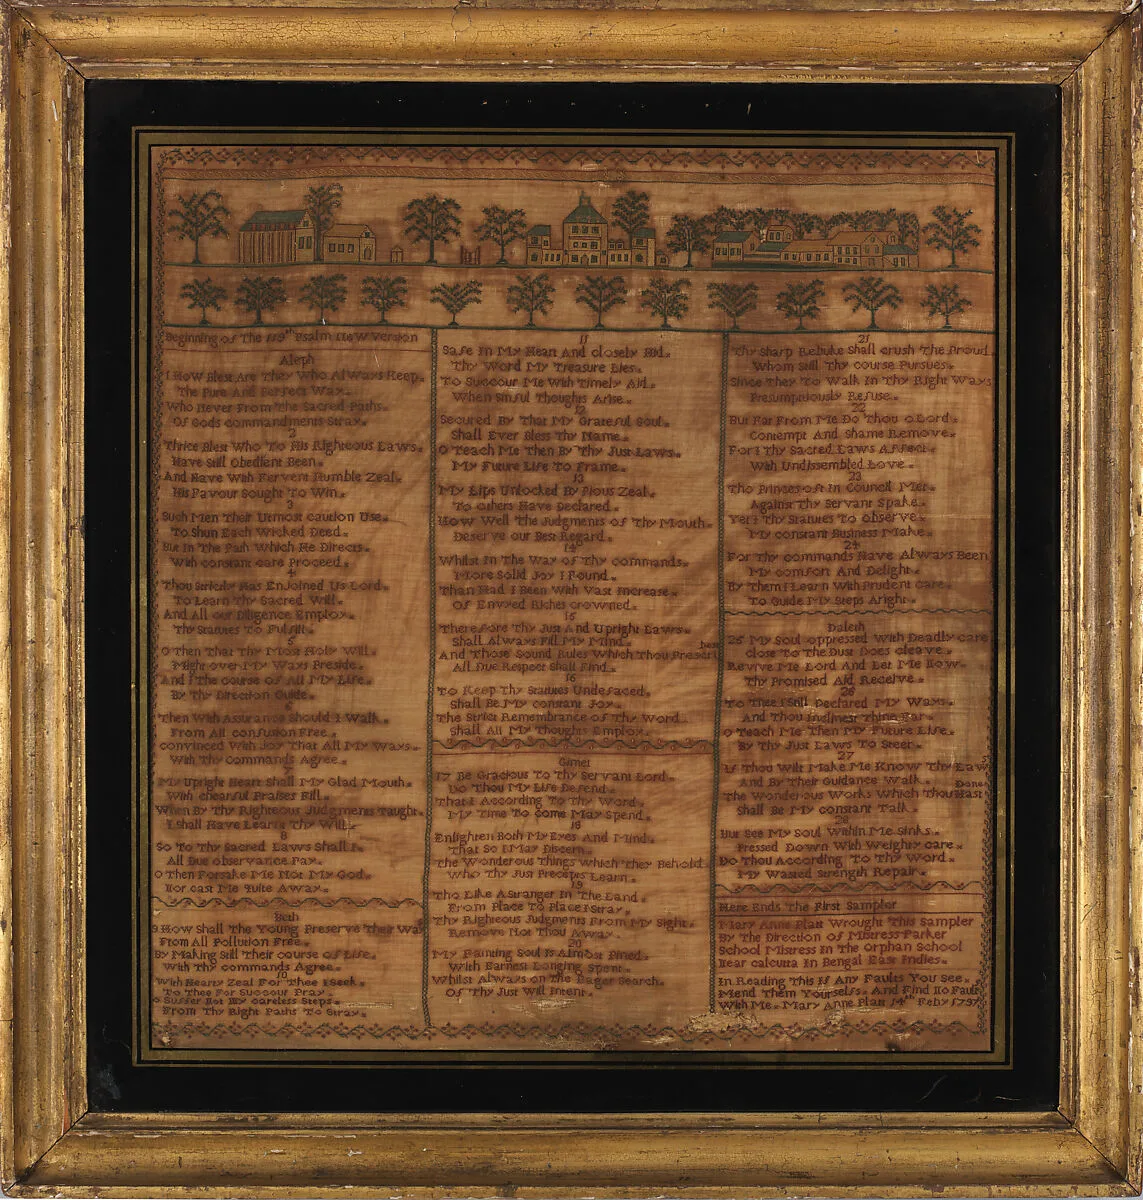 Beginning of The 119th Psalm New Version
Aleph
1 How Blest Are They Who Always Keep
The Pure And Perfect Way
Who Never From The Sacred Paths
Of Gods commandments Stray
2
Thrice Blest Who To His Righteous Laws
Have Still Obedient Been
And Have With Fervent Humble Zeal
His Favour Sought To Win
3
Such Men Their Utmost caution Use
To Shun Each Wicked Deed
But In The Path Which He Directs
With constant care Proceed
4
Thou Strictly Has Enjoined Us Lord
To Learn Thy Sacred Will
And All our Diligence Employ
Thy Statutes To Fulfill
5
O Then That Thy Most Holy Will
Might over My Ways Preside
And I The course of All My Life
By Thy Direction Guide
6
Then With Assurance Should I Walk
From All confusion Free
convinced With Joy That All My Ways
With Thy Commands Agree
7
My Upright Heart Shall My Glad Mouth
With chearful Praises Fill
When By Thy Righteous Judgments Taught
I Shall Have Learnt Thy Will
8
So To Thy Sacred Laws Shall I
All Due observance Pay
O Then Forsake Me Not My God
Nor cast Me Quite Away
Beth
9 How Shall The Young Preserve Their Ways
From All Pollution Free
By Making Still Their course of Life
With Thy commands Agree
10
With Hearty Zeal For Thee I Seek
To Thee For Succour Pray
O Suffer Not My careless Steps
From Thy Right Paths To Stray
11
Safe In My Heart And closely Hid
Thy Word My Treasure Lies
To Succour Me With Timely Aid
When Sinful Thoughts Arise
12
Secured By That My Grateful Soul
Shall Ever Bless Thy Name
O Teach Me Then By Thy Just Laws
My Future Life To Frame
13
My Lips Unlocked By Pious Zeal
To others Have Declared
How Well The Judgments of Thy Mouth
Deserve our Best Regard
14
Whilst In The Way of Thy commands
More Solid Joy I Found
Than Had I Been With Vast Increase
Of Envyed Riches crowned
15
Therefore Thy Just And Upright Laws
Shall Always Fill My Mind
And Those Sound Rules Which Thou Prescribest
All Due Respect Shall Find
16
To Keep Thy Statutes Undefaced
Shall Be My constant Joy
The Strict Remembrance of Thy Word
Shall All My Thoughts Employ
Gimel
17 Be Gracious To Thy Servant Lord
Do Thou My Life Defend
That I According To Thy Word
My Time To Come May Spend
18
Enlighten Both My Eyes And Mind
That So I May Discern
The Wonderous Things which They Behold
Who Thy Just Precepts Learn
19
Tho Like A Stranger In The Land
From Place To Place I Stray
Thy Righteous Judgments From My Sight
Remove Not Thou Away
20
My Fainting Soul Is Almost Pined
With Earnest Longing Spent
Whilst Always on The Eager Search
Of Thy Just Will Intent
21
Thy Sharp Rebuke Shall crush The Proud
Whom Still Thy course Pursues
Since They To Walk In Thy Right Ways
Presumptuously Refuse
22
But Far From Me Do Thou O Lord
Contempt And Shame Remove
For I Thy Sacred Laws Affect
With Undissembled Love
23
Tho Princes oft In Council Met
Against Thy Servant Spake
Yet I Thy Statutes To observe
My constant Business Make
24
For Thy commands Have Always Been
My comfort And Delight
By Them I Learn With Prudent care
To Guide My Steps Aright
Daleth
25 My Soul oppressed With Deadly care
close To The Dust Does cleave
Revive Me Lord And Let Me Now
Thy Promised Aid Receive
26
To Thee I Still Declared My Ways
And Thou Inclinest Thine Ear
O Teach Me Then My Future Life
By Thy Just Laws To Steer
27
If Thou Wilt Make Me Know Thy Laws
And By Their Guidance Walk
The Wonderous Works Which Thou Hast Done
Shall Be My constant Talk
28
But See My Soul Within Me Sinks
Pressed Down With Weighty care
Do Thou According To Thy Word
My Wasted Strength Repair
Here Ends The First Sampler
Mary Anne Platt Wrought This Sampler
By The Direction of Mistress Parker
School Mistress In The Orphan School
Near calcutta In Bengal East Indies
In Reading This If Any Faults You See
Mend Them Yourselfs And Find No Fault
With Me Mary Anne Platt 14th Feby 1797